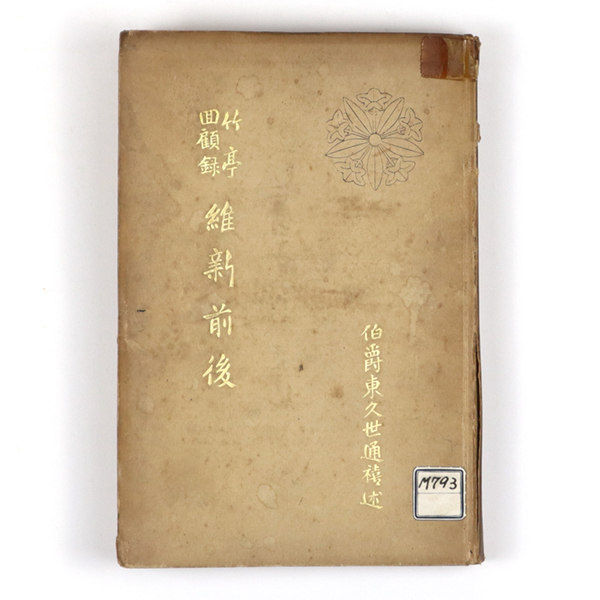 竹亭
回顧録
維新前後
伯爵東久世通禧述
M793